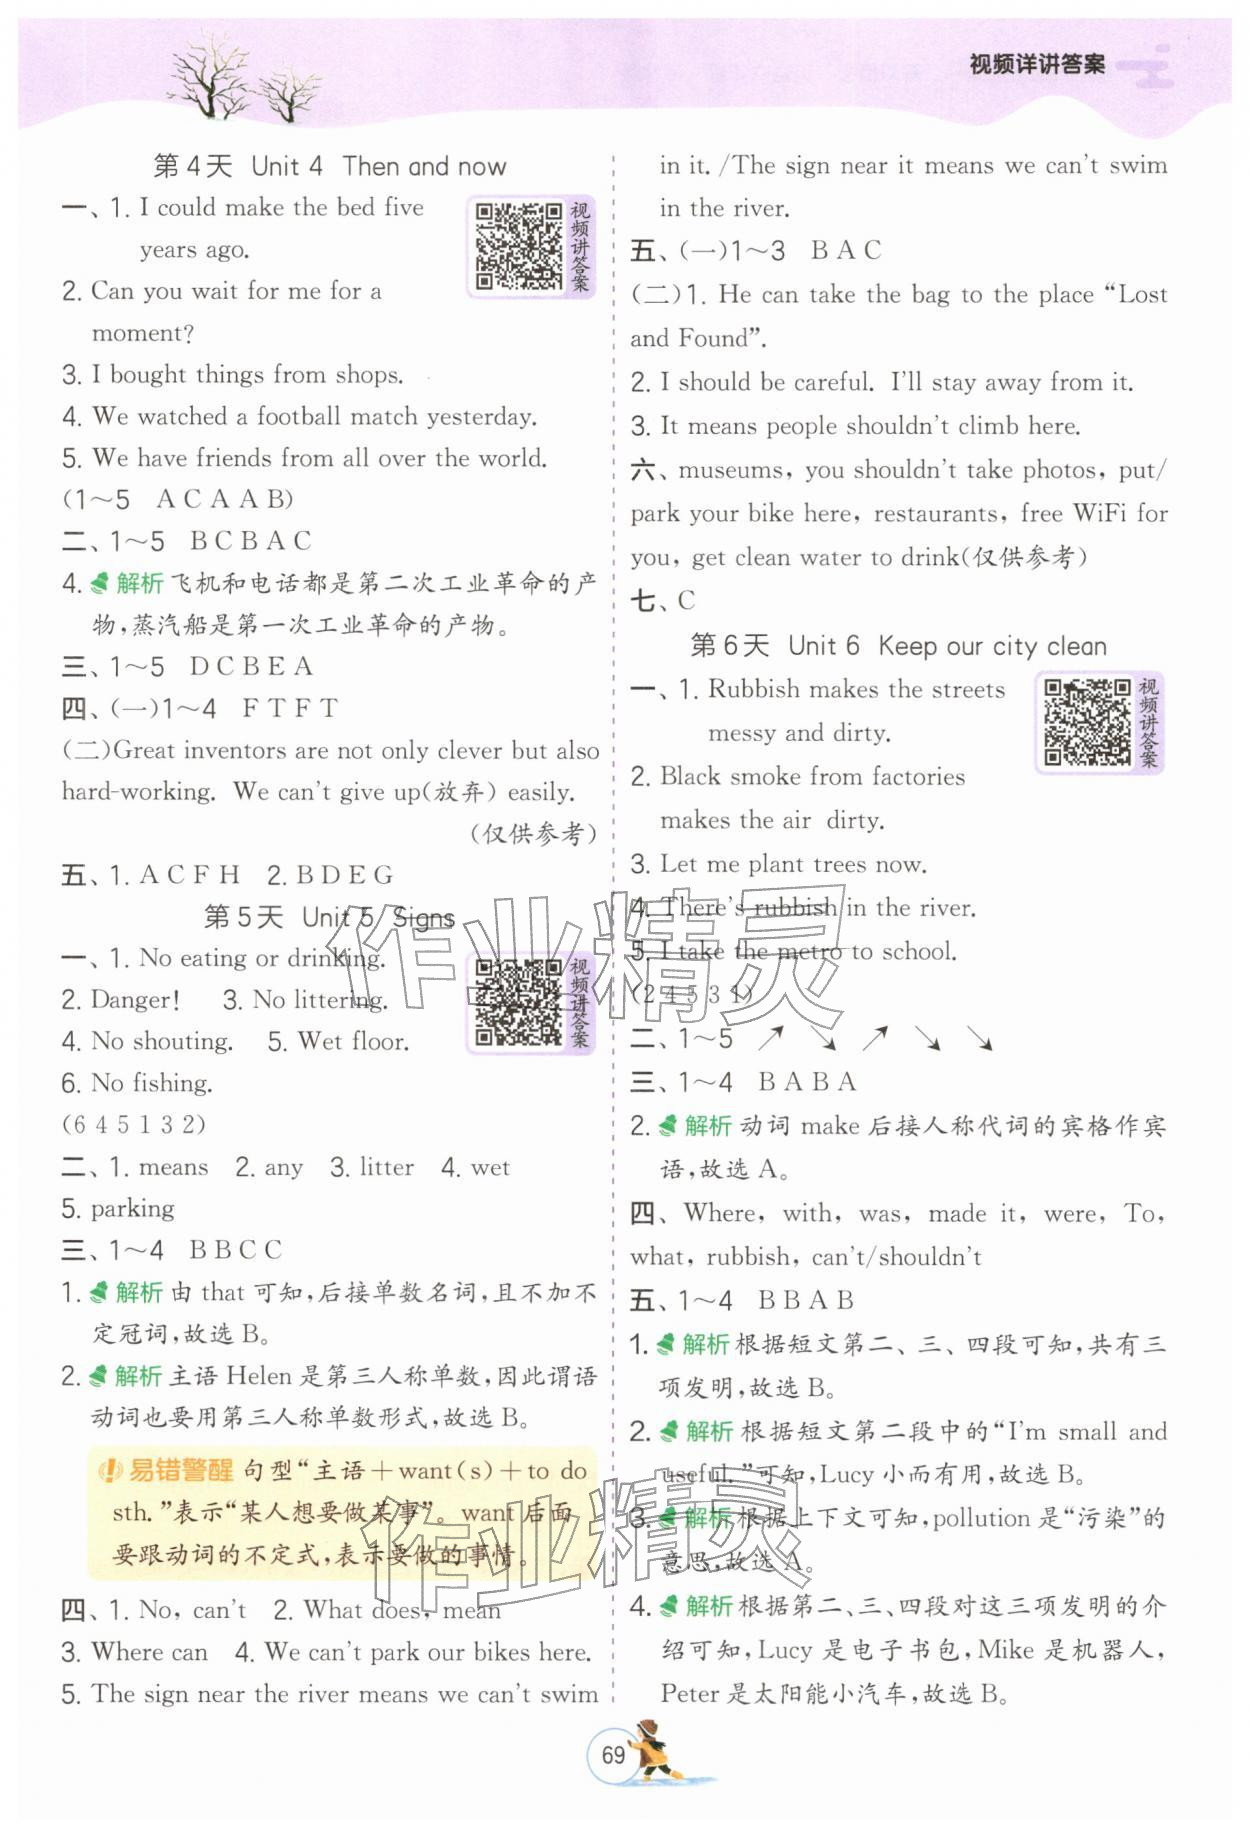 视频详讲答案
第4天 Unit 4 Then and now
一、1. I could make the bed five
years ago.
视频讲答案
2. Can you wait for me for a
moment?
3. I bought things from shops.
4. We watched a football match yesterday.
5. We have friends from all over the world.
(1～5 A C A A B)
二、1～5 B C B A C
4. 解析 飞机和电话都是第二次工业革命的产
物,蒸汽船是第一次工业革命的产物。
三、1～5 D C B E A
四、(一)1～4 F T F T
(二)Great inventors are not only clever but also
hard-working. We can't give up(放弃) easily.
(仅供参考)
五、1. A C F H 2. B D E G
第5天 Unit 5 Signs
一、1. No eating or drinking.
2. Danger! 3. No littering.
4. No shouting. 5. Wet floor.
视频讲答案
6. No fishing.
(6 4 5 1 3 2)
二、1. means 2. any 3. litter 4. wet
5. parking
三、1～4 B B C C
1. 解析 由 that 可知,后接单数名词,且不加不
定冠词,故选 B。
2. 解析 主语 Helen 是第三人称单数,因此谓语
动词也要用第三人称单数形式,故选 B。
易错警醒 句型“主语＋want(s)＋to do
sth.”表示“某人想要做某事”。want 后面
要跟动词的不定式,表示要做的事情。
四、1. No, can't 2. What does, mean
3. Where can 4. We can't park our bikes here.
5. The sign near the river means we can't swim
in it. /The sign near it means we can't swim
in the river.
五、(一)1～3 B A C
(二)1. He can take the bag to the place “Lost
and Found”.
2. I should be careful. I'll stay away from it.
3. It means people shouldn't climb here.
六、museums, you shouldn't take photos, put/
park your bike here, restaurants, free WiFi for
you, get clean water to drink(仅供参考)
七、C
第6天 Unit 6 Keep our city clean
一、1. Rubbish makes the streets
messy and dirty.
视频讲答案
2. Black smoke from factories
makes the air dirty.
3. Let me plant trees now.
4. There's rubbish in the river.
5. I take the metro to school.
(2 4 5 3 1)
二、1～5 ↗ ↘ ↗ ↘ ↘
三、1～4 B A B A
2. 解析 动词 make 后接人称代词的宾格作宾
语,故选 A。
四、Where, with, was, made it, were, To,
what, rubbish, can't/shouldn't
五、1～4 B B A B
1. 解析 根据短文第二、三、四段可知,共有三
项发明,故选 B。
2. 解析 根据短文第二段中的“I'm small and
useful.”可知,Lucy 小而有用,故选 B。
3. 解析 根据上下文可知,pollution 是“污染”的
意思,故选 A。
4. 解析 根据第二、三、四段对这三项发明的介
绍可知,Lucy 是电子书包,Mike 是机器人,
Peter 是太阳能小汽车,故选 B。
作业精灵
作业精灵
69